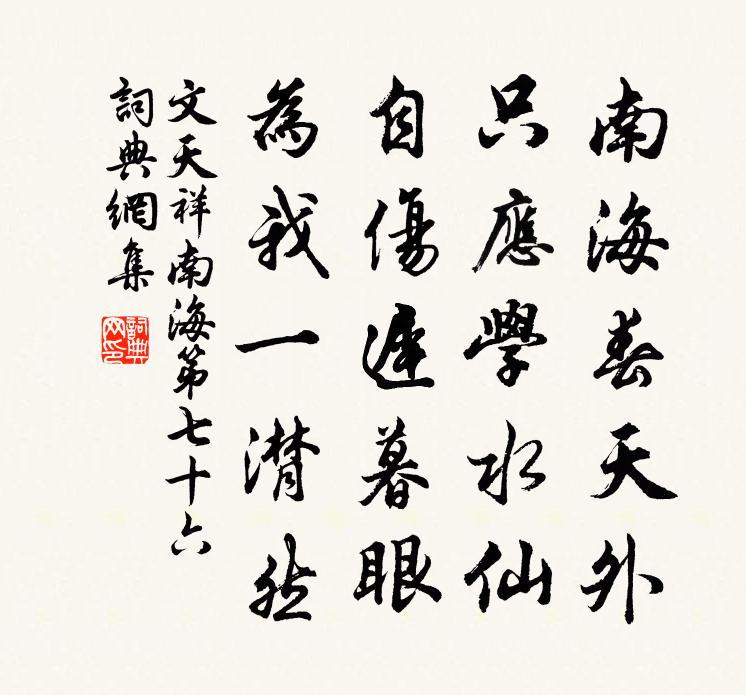 南海春天外
只應學水仙
自傷遲暮眼
為我一潸然
文天祥南海第七十六
詞典網集
詞典网印